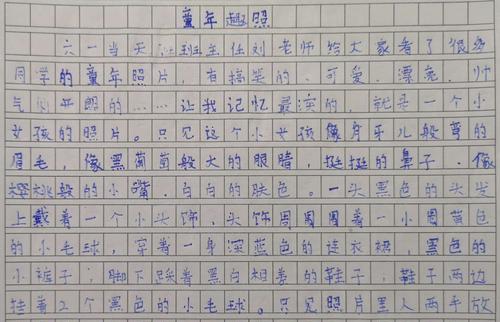 童年趣照
六一当天班主任刘老师给大家看了很多
同学的童年照片，有搞笑的、可爱、漂亮、帅
气的……让我记忆最深的，就是一个小
女孩的照片。只见这个小女孩像月牙儿般弯的
眉毛，像黑葡萄般大的眼睛，挺挺的鼻子，像
樱桃般的小嘴，白白的肤色。一头黑色的头发
上戴着一个小头饰，头饰周围围着一小圈黄色
的小毛球，穿着一身深蓝色的连衣裙，黑色的
小裤子，脚下踩着黑白相卷的鞋子，鞋子两边
挂着2个黑色的小毛球。只见照片里人两手放